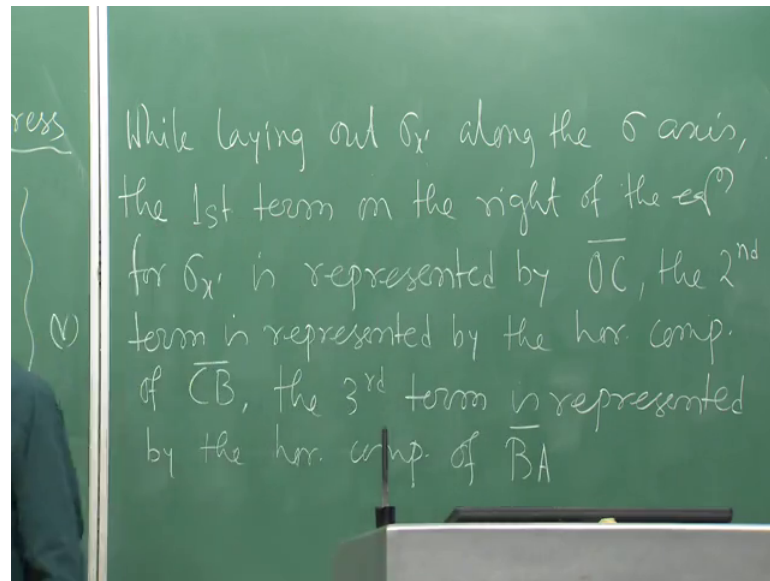 ress
While laying out σx' along the σ axis,
the 1st term on the right of the eqⁿ
for σx' is represented by O̅C̅, the 2nd
(V) term is represented by the hor. comp.
of C̅B̅, the 3rd term is represented
by the hor. comp. of B̅A